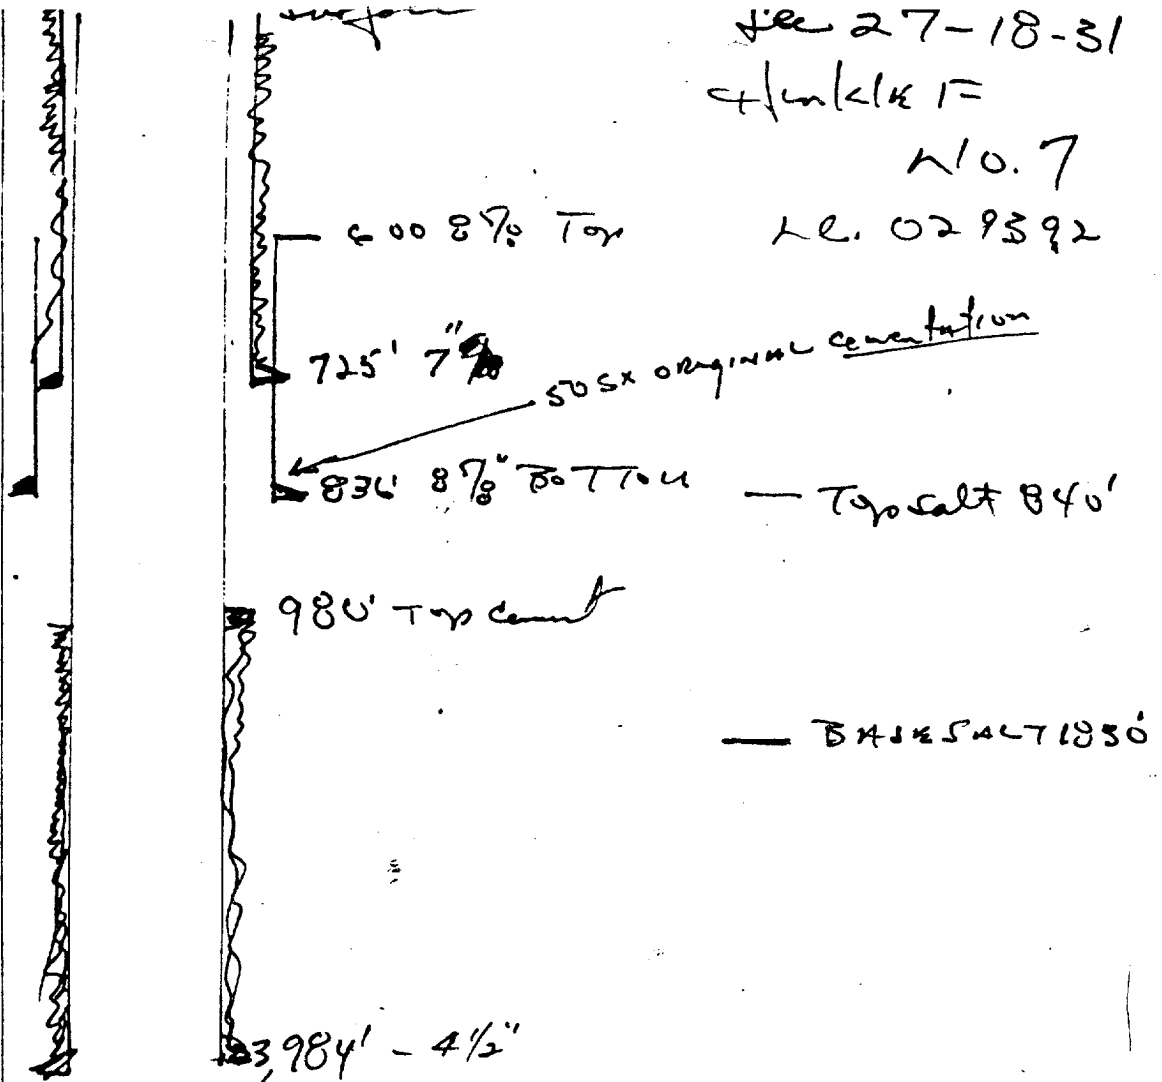 surface
Sec 27-18-31
Hinkle F
No. 7
LC. 029392
600 8⅝ Top
725' 7"
50 SX ORIGINAL cementation
836' 8⅝" BOTTOM
Top salt 840'
980' Top Cement
BASE SALT 1830'
3,984' - 4½"